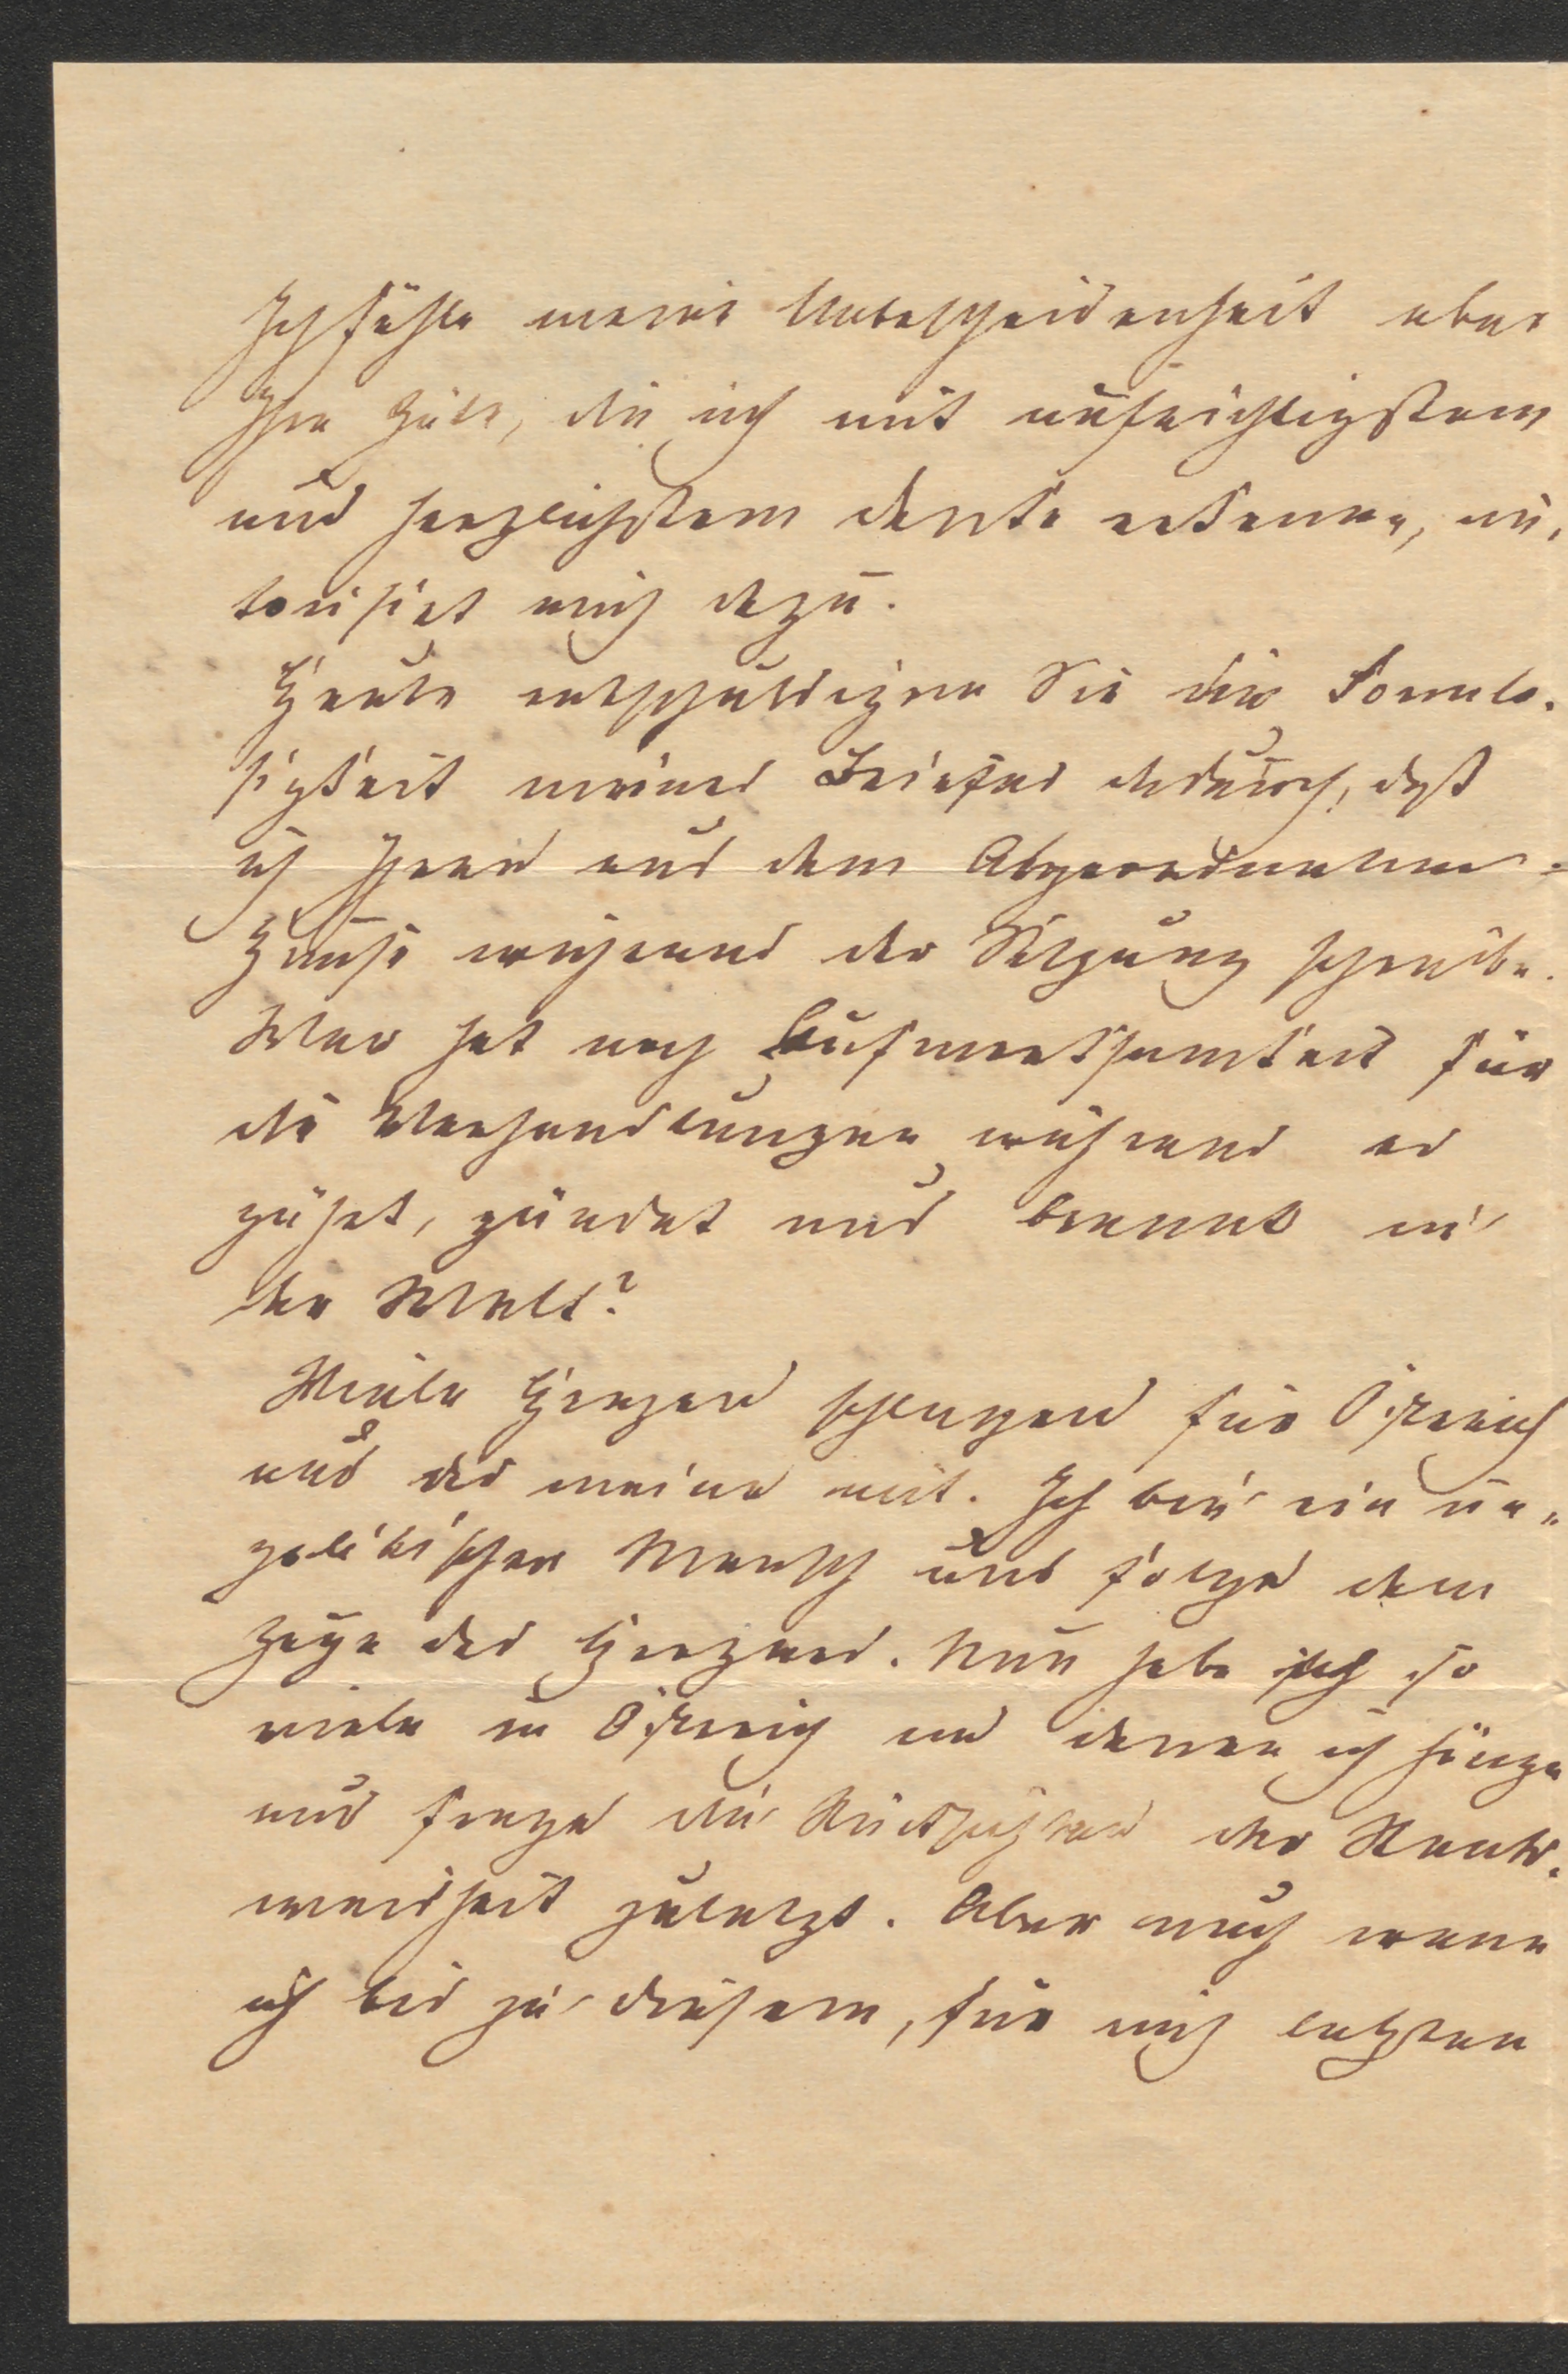 Ich fühle meine Unbescheidenheit aber
Ihre Güte, die ich mit aufrichtigstem
und herzlichstem Danke erkenne, au-
torisirt mich dazu.
Heute entschuldigen Sie die Formlo-
sigkeit meines Briefes dadurch, daß
ich Ihnen aus dem Abgeordneten-
Hause während der Sitzung schreibe.
Wer hat noch Aufmerksamkeit für
die Verhandlungen während es
gährt, zündet und brennt in
der Welt?
Viele Herzen schlagen für Östreich
und das meine mit. Ich bin ein un-
politischer Mensch und folge dem
Zuge des Herzens. Nun habe ich so
viele in Östreich an denen ich hänge
und frage die Rücksichten der Staats-
weisheit zuletzt. Aber auch wenn
ich bis zu diesem, für mich letzten